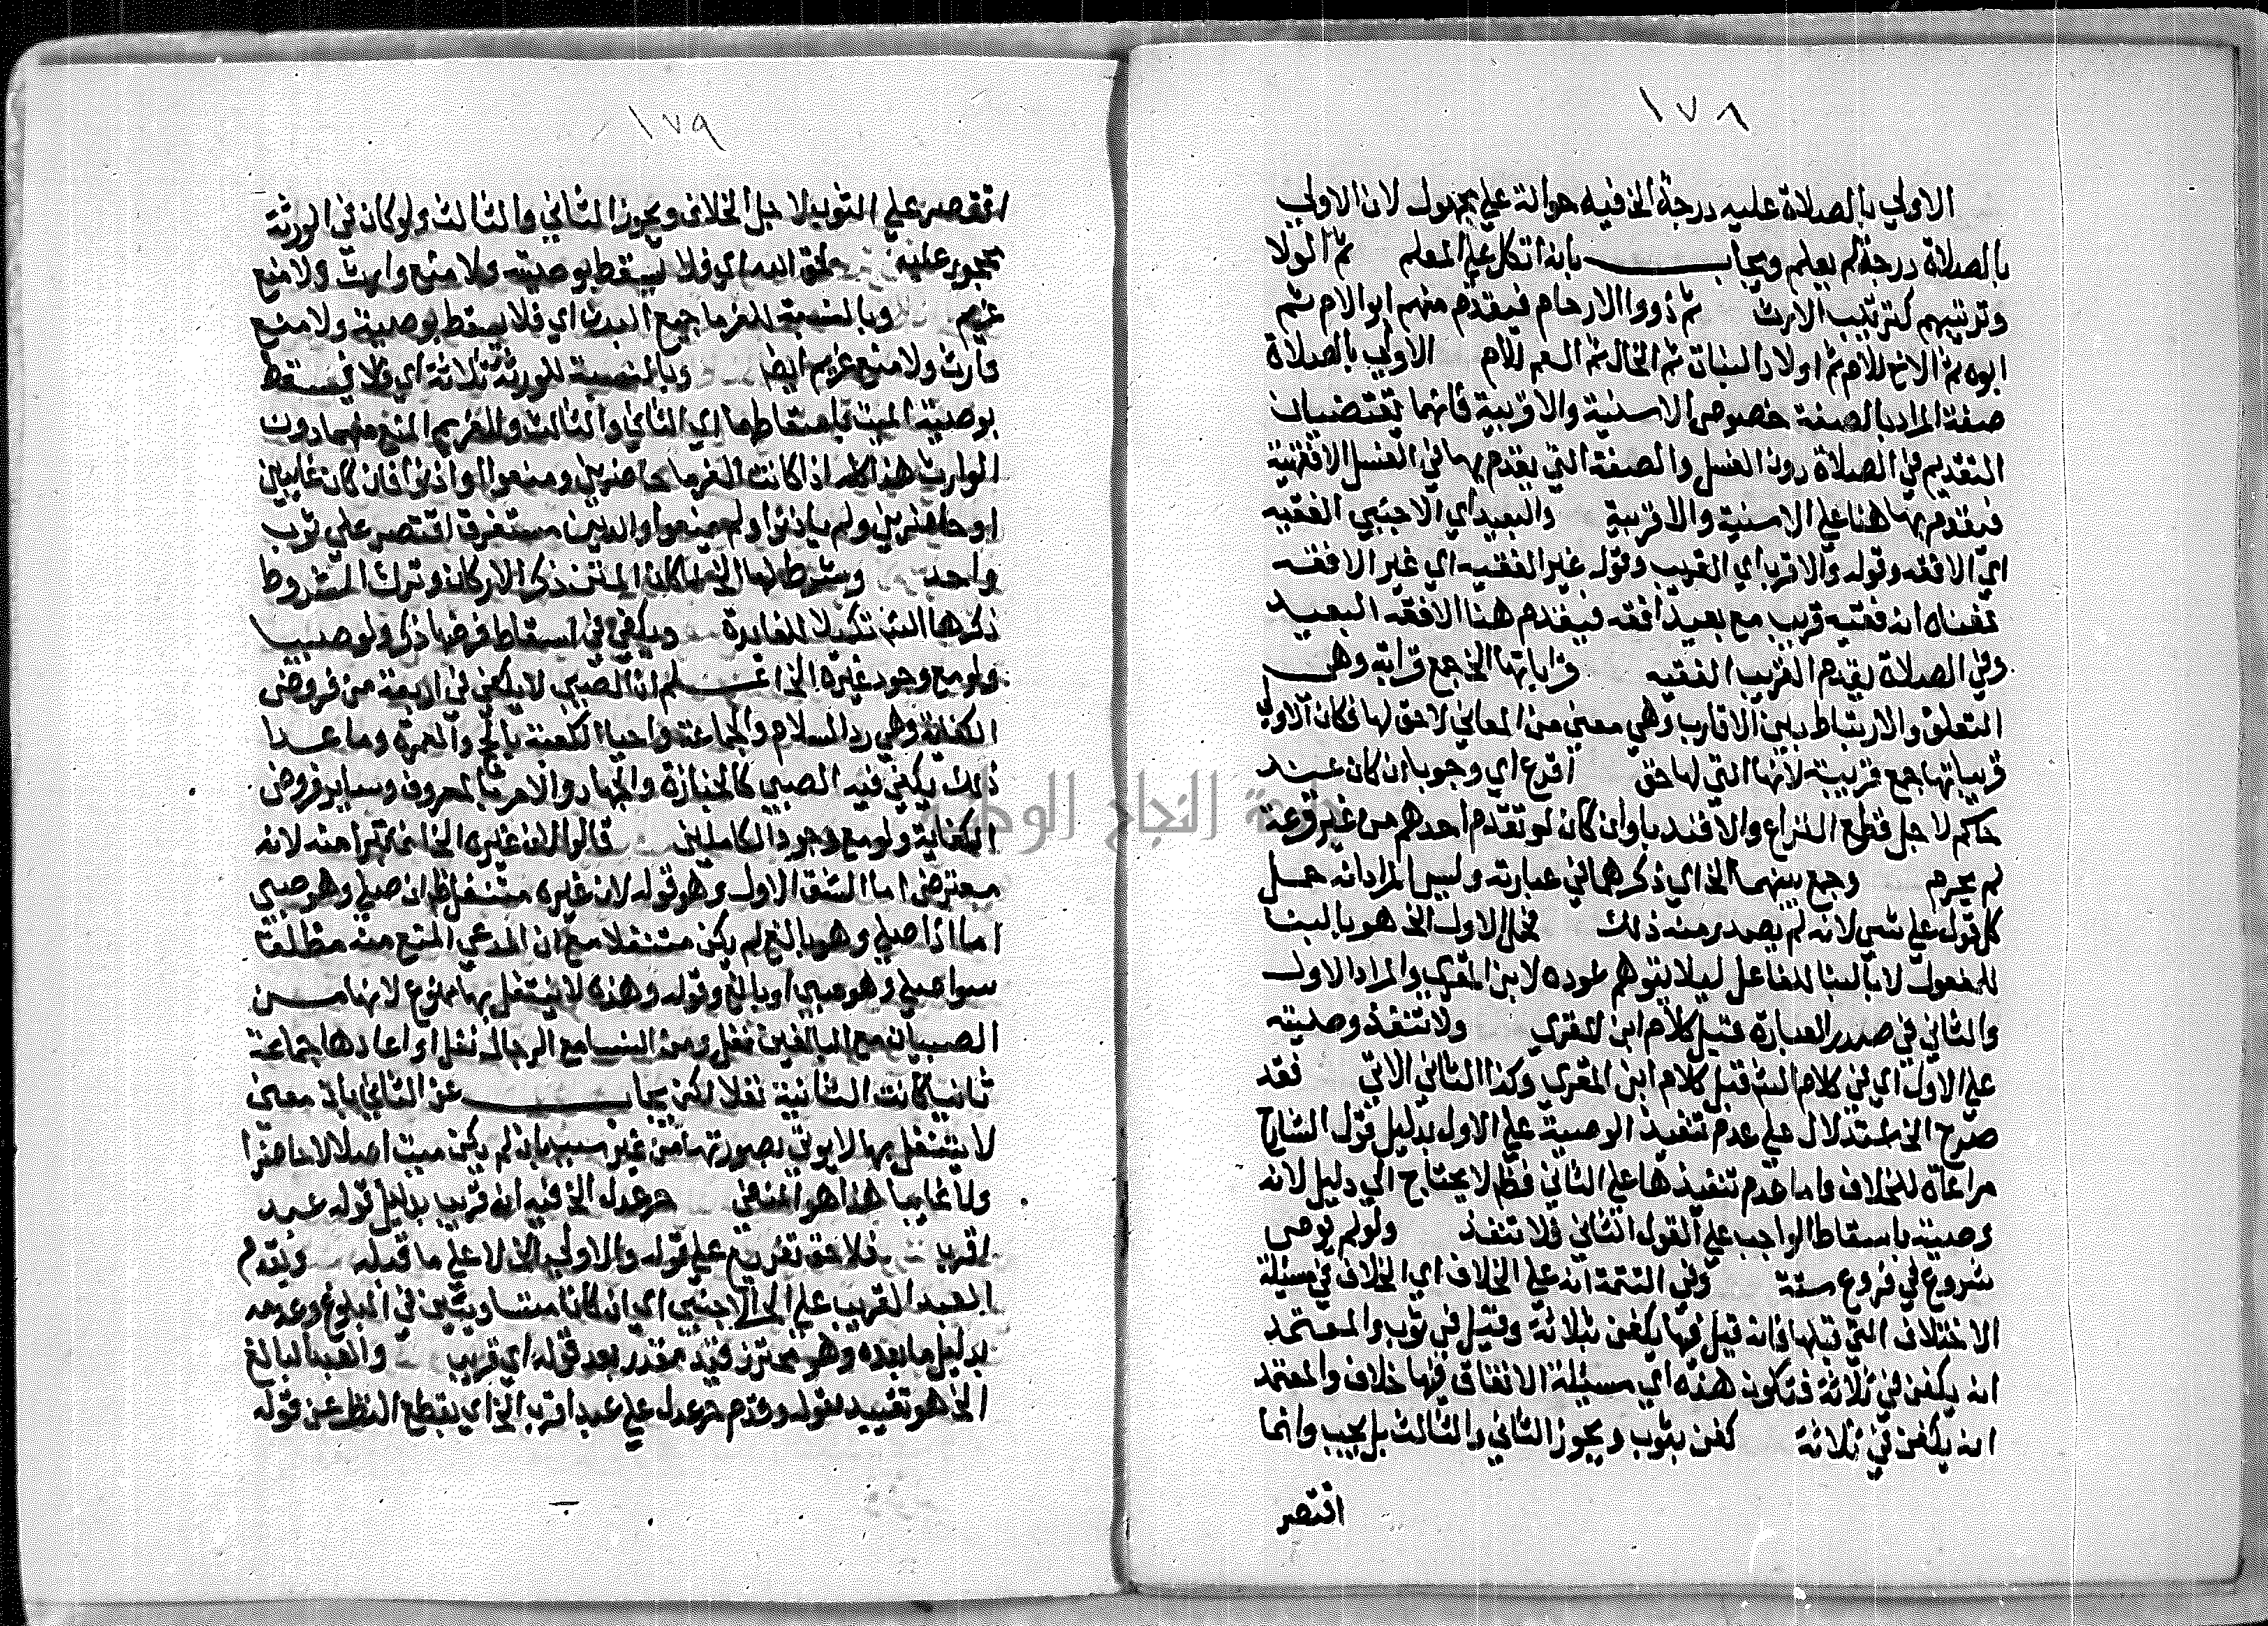 ١٧٨
الاولي بالصلاة عليه درجة الخ فيه حوالة علي مجهول لان الاولي
بالصلاة درجة لم يعلم ويجاب بانه اتكل علي المعلم ثم الولا
وترتيبهم كترتيب الارث ثم ذووا الارحام فيقدم منهم ابو الام ثم
ابوه ثم الاخ للام ثم اولاد البنات ثم الخال ثم العم للام الاولي بالصلاة
صفة المراد بالصفة خصوص الاسنية والاقربية فانهما يقتضيان
التقديم في الصلاة دون الغسل والصفة التي يقدم بها في الغسل الافقهية
فيقدم بها هنا علي الاسنية والاقربية والبعيد اي الاجنبي الفقيه
اي الافقه وقوله والاقرب اي القريب وقوله غير الفقيه اي غير الافقه
فمعناه انه فقيه قريب مع بعيد افقه فيقدم هنا الافقه البعيد
وفي الصلاة يقدم القريب الفقيه قراباتها الخ جمع قرابة وهي
التعلق والارتباط بين الاقارب وهي معني من المعاني لا حق لها فكان الاولي
قريباتها جمع قريبة لانها التي لها حق اقرع اي وجوبا ان كان عند
حاكم لاجل قطع النزاع والا فندبا وان كان لو تقدم احدهم من غير قرعة
لم يحرم وجمع بينهما الخ اي ذكرهما في عبارته وليس المراد انه حمل
كل قول علي شي لانه لم يصدر منه ذلك محل الاول الخ هو بالبنا
للمفعول لا بالبنا للفاعل ليلا يتوهم عوده لابن المقري والمراد الاول
والثاني في صدر العبارة قبل كلام ابن المقري ولا تنفذ وصيته
علي الاول اي في كلام الش قبل كلام ابن المقري وكذا الثاني الاتي فقد
صرح الخ استدلال علي عدم تنفيذ الوصية علي الاول بدليل قول الشارح
مراعاة للخلاف واما عدم تنفيذها علي الثاني فظ لا يحتاج الي دليل لانه
وصية باسقاط الواجب علي القول الثاني فلا تنفذ ولو لم يوص
شروع في فروع ستة وفي التتمة انه علي الخلاف اي الخلاف في مسيلة
الاختلاف التي قبلها فانه قيل فيها يكفن بثلاثة وقيل في ثوب والمعتمد
انه يكفن في ثلاثة فتكون هذه اي مسيلة الاتفاق فيها خلاف والمعتمد
انه يكفن في ثلاثة كفن بثوب ويجوز الثاني والثالث بل يجب وانما
اقتصر
١٧٩
اقتصر علي الثوب لاجل الخلاف ويجوز الثاني والثالث ولو كان في الورثة
محجور عليه لحق الله اي فلا يسقط بوصية ولا منع وارث ولا منع
غريم وبالنسبة للغرما جميع البدن اي فلا يسقط بوصية ولا منع
وارث ولا منع غريم ايض وبالنسبة للورثة ثلاثة اي فلا تسقط
بوصية الميت باسقاطها اي الثاني والثالث وللغريم المنع منهما دون
الوارث هذا كله اذا كانت الغرما حاضرين ومنعوا او اذنوا فان كان غايبين
او حاضرين ولم ياذنوا ولم يمنعوا والدين مستغرق اقتصر علي ثوب
واحد وشرط لها الخ لما كان المتن ذكر الاركان وترك الشروط
ذكرها الش تكميلا للفايدة ويكفي في اسقاط فرضها ذكر ولو صبيا
ولو مع وجود غيره الخ اعلم ان الصبي لا يكفي في اربعة من فروض
الكفاية وهي رد السلام والجماعة واحيا الكعبة بالحج والعمرة وما عدا
ذلك يكفي فيه الصبي كالجنازة والجهاد والامر بالمعروف وساير فروض
الكفاية ولو مع وجود الكاملين قالوا لان غيره الخ انما تبرا منه لانه
معترض اما الشق الاول وهو قوله لان غيره متنفل ظ ان صلي وهو صبي
اما اذا صلي وهو بالغ لم يكن متنفلا مع ان المدعي المنع منه مطلقا
سوا صلي وهو صبي او بالغ وقوله وهذه لا يتنفل بها ممنوع لانها من
الصبيان مع البالغين نفل ومن النسا مع الرجال نفل او اعادها جماعة
ثانيا كانت الثانية نفلا لكن يجاب عن الثاني بان معني
لا يتنفل بها لا يوتي بصورتها من غير سبب بان لم يكن ميت اصلا لا حاضرا
ولا غايبا هذا هو المنفي حر عدل الخ فيه انه قريب بدليل قوله عبد
اقرب فلاحق تفريع علي قوله والاولي الخ لا علي ما قبله ويقدم
العبد القريب علي الحر الاجنبي اي ان كانا متساويين في البلوغ وعدمه
بدليل ما بعده وهو محترز قيد مقدر بعد قوله اي قريب والعبد البالغ
الخ هو تقييد لقوله ويقدم حر عدل علي عبد اقرب الخ اي بقطع النظر عن قوله